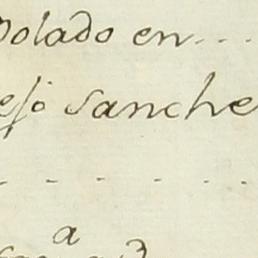 Polado en....
esio Sanche
- - - - - -
a